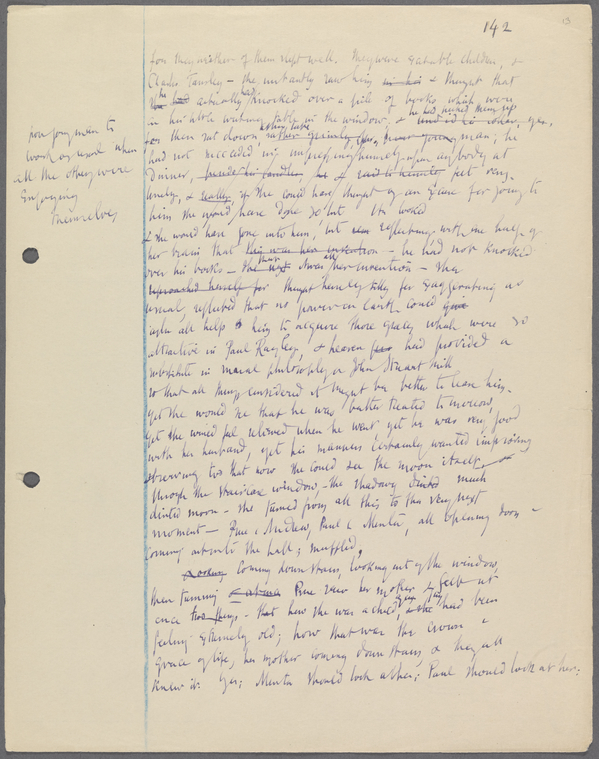 142
13
for they neither of them slept well. They were excitable children, &
Charles Tansley – she instantly saw him in his & thought that
he had actually knocked over a pile of books which were
in his whole writing table in the window, & he had picked them up
for then sat down, rather grimly, poor young man; he
had not succeeded in impressing himself upon anybody at
Dinner, & felt very
lonely, & really if she could have thought of an excuse for going to
him she would have done so, but It looked
& she would have gone into him, but reflecting with one half of
her brain that this was her invention – he had not knocked
over his books – the was her invention – then
reproached herself for thought herself silly for exaggerating as
usual, reflected that no power on earth could give
after all help him to acquire those graces which were so
attractive in Paul Rayley, & heaven had provided a
substitute in moral philosophy or John Stuart Mill
so that all things considered it might be better to leave him.
Yet she would see that he was better treated tomorrow,
yet she would feel relieved when he went yet he was very good
with her husband, yet his manners certainly wanted improving
observing too that now she could see the moon itself,
through the staircase window, – the shadowy dinted much
dinted moon – she turned from all this to the very next
moment – Prue & Andrew, Paul & Minta, all opening doors –
coming out into the hall; muffled,
Looking Coming down stairs, looking out of the window,
then turning Prue saw her mother & felt at
once two things – that how she was a child, had been
feeling extremely old; how that was the crown &
grace of life, her mother coming down stairs, & they all
knew it. Yes; Minta should look at her; Paul should look at her;
poor young man to
work upward when
all the others were
Enjoying
themselves